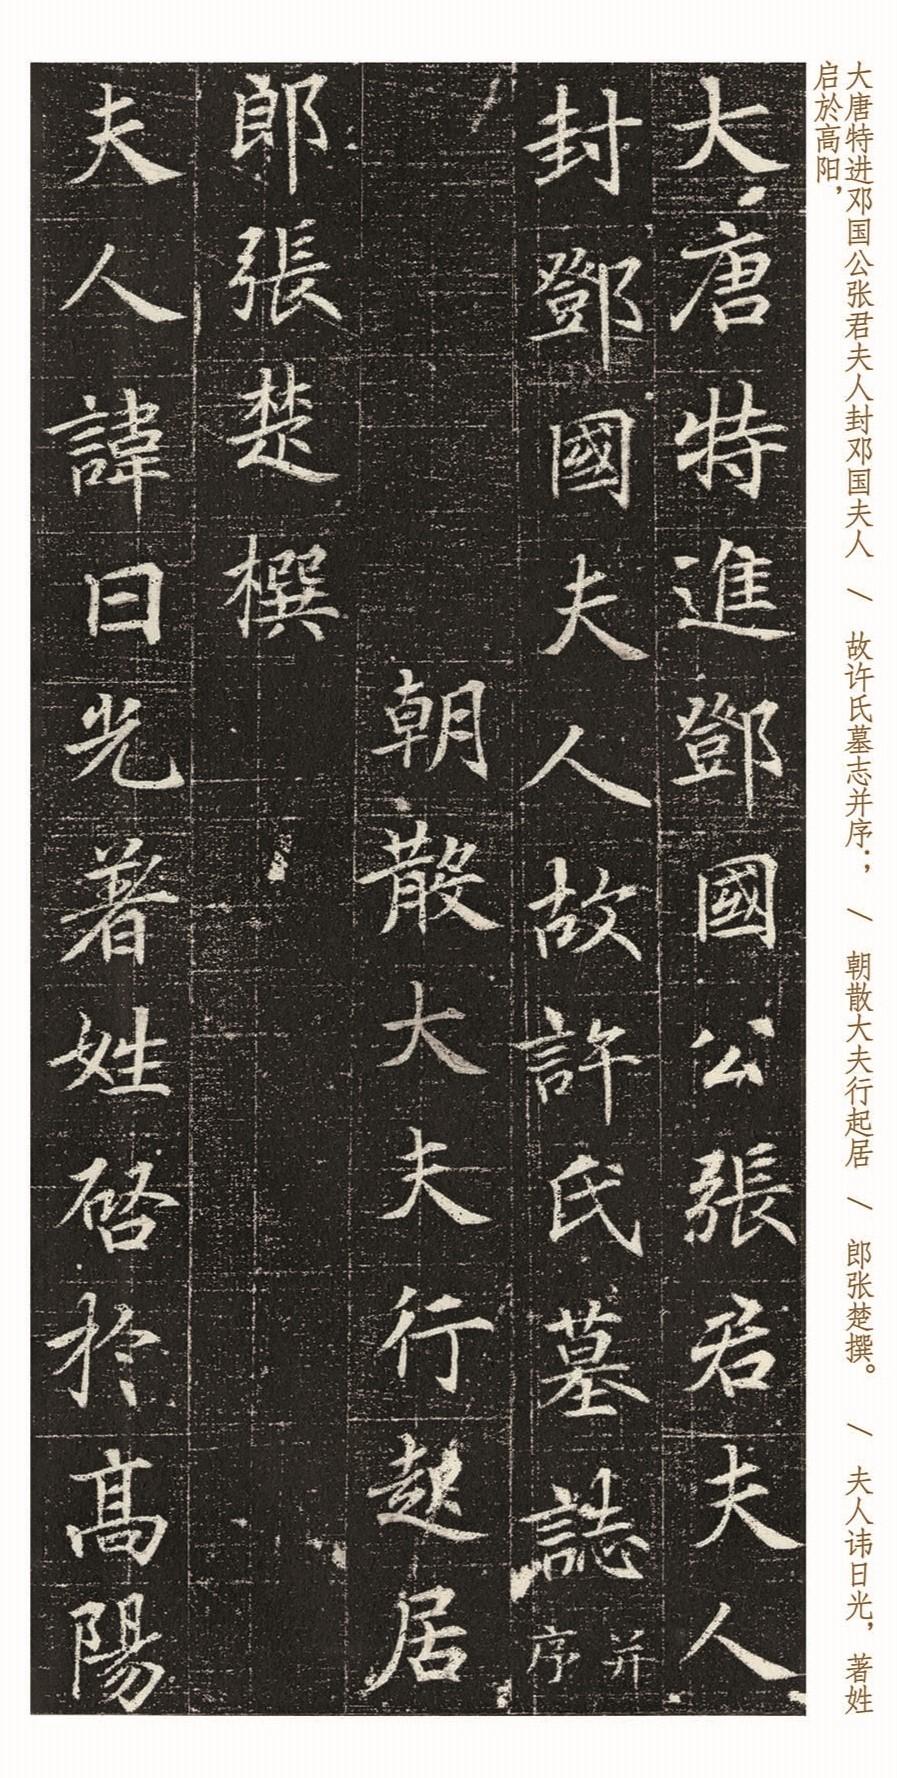 大唐特进邓国公张君夫人封邓国夫人 \ 故许氏墓志并序； \ 朝散大夫行起居 \ 郎张楚撰。 \ 夫人讳日光，著姓
启於高阳，
大唐特進鄧國公張君夫人
封鄧國夫人故許氏墓誌并序
朝散大夫行起居
郎張楚撰
夫人諱日光著姓啓於高陽